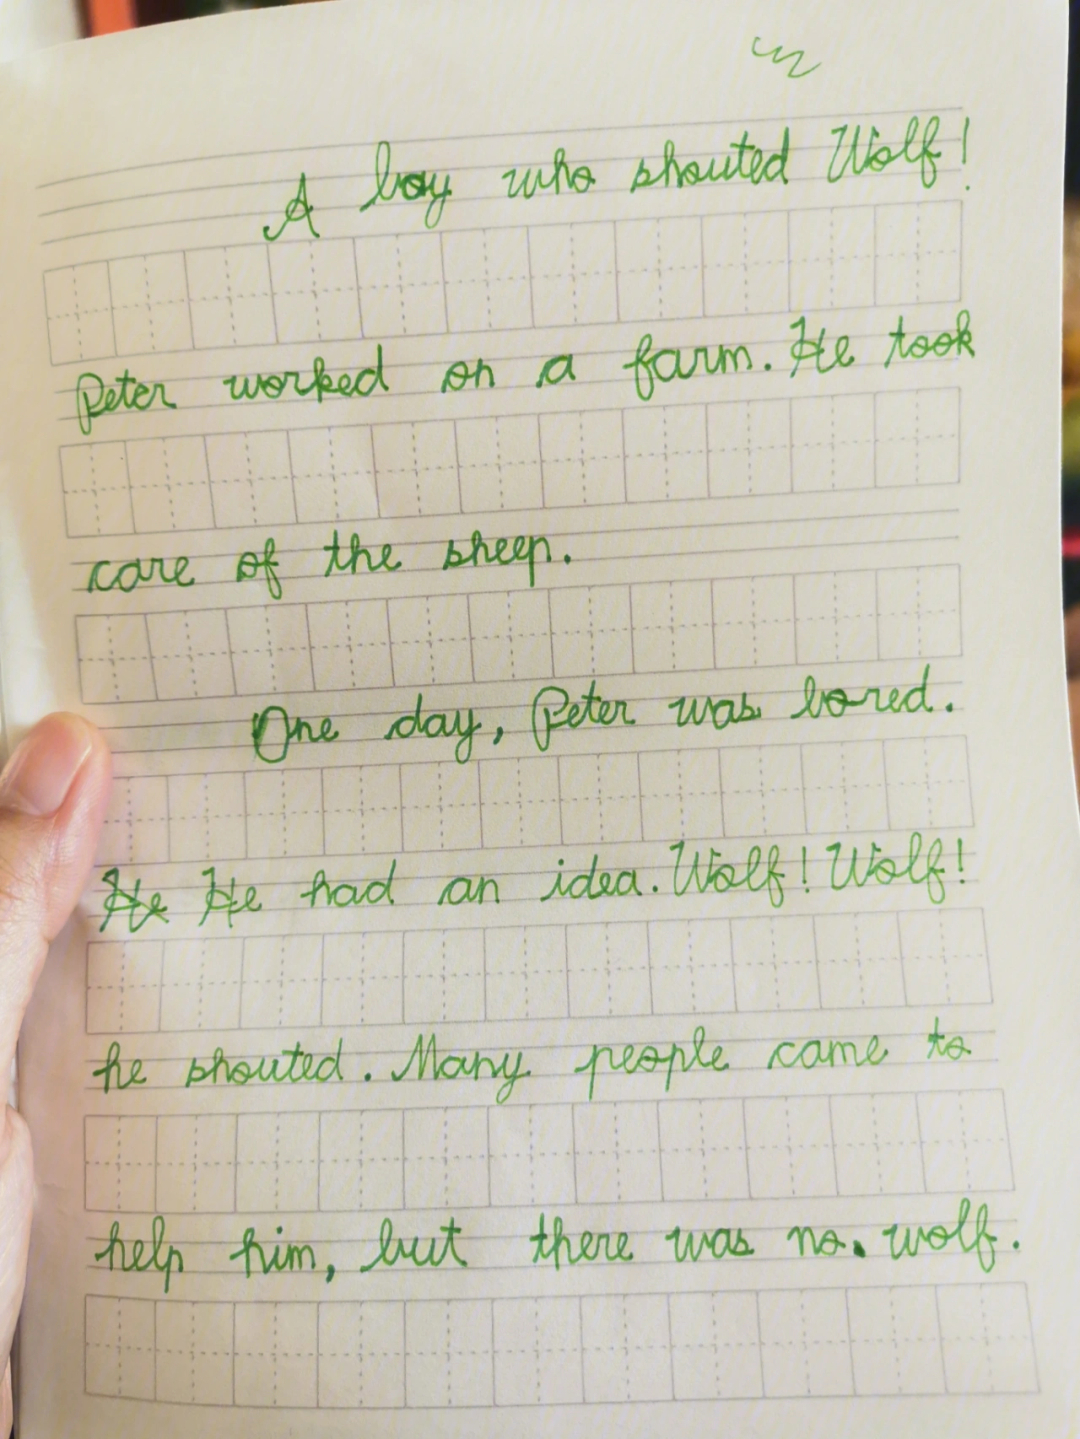 A boy who shouted Wolf!
Peter worked on a farm. He took
care of the sheep.
One day, Peter was bored.
He He had an idea. Wolf! Wolf!
he shouted. Many people came to
help him, but there was no. wolf.